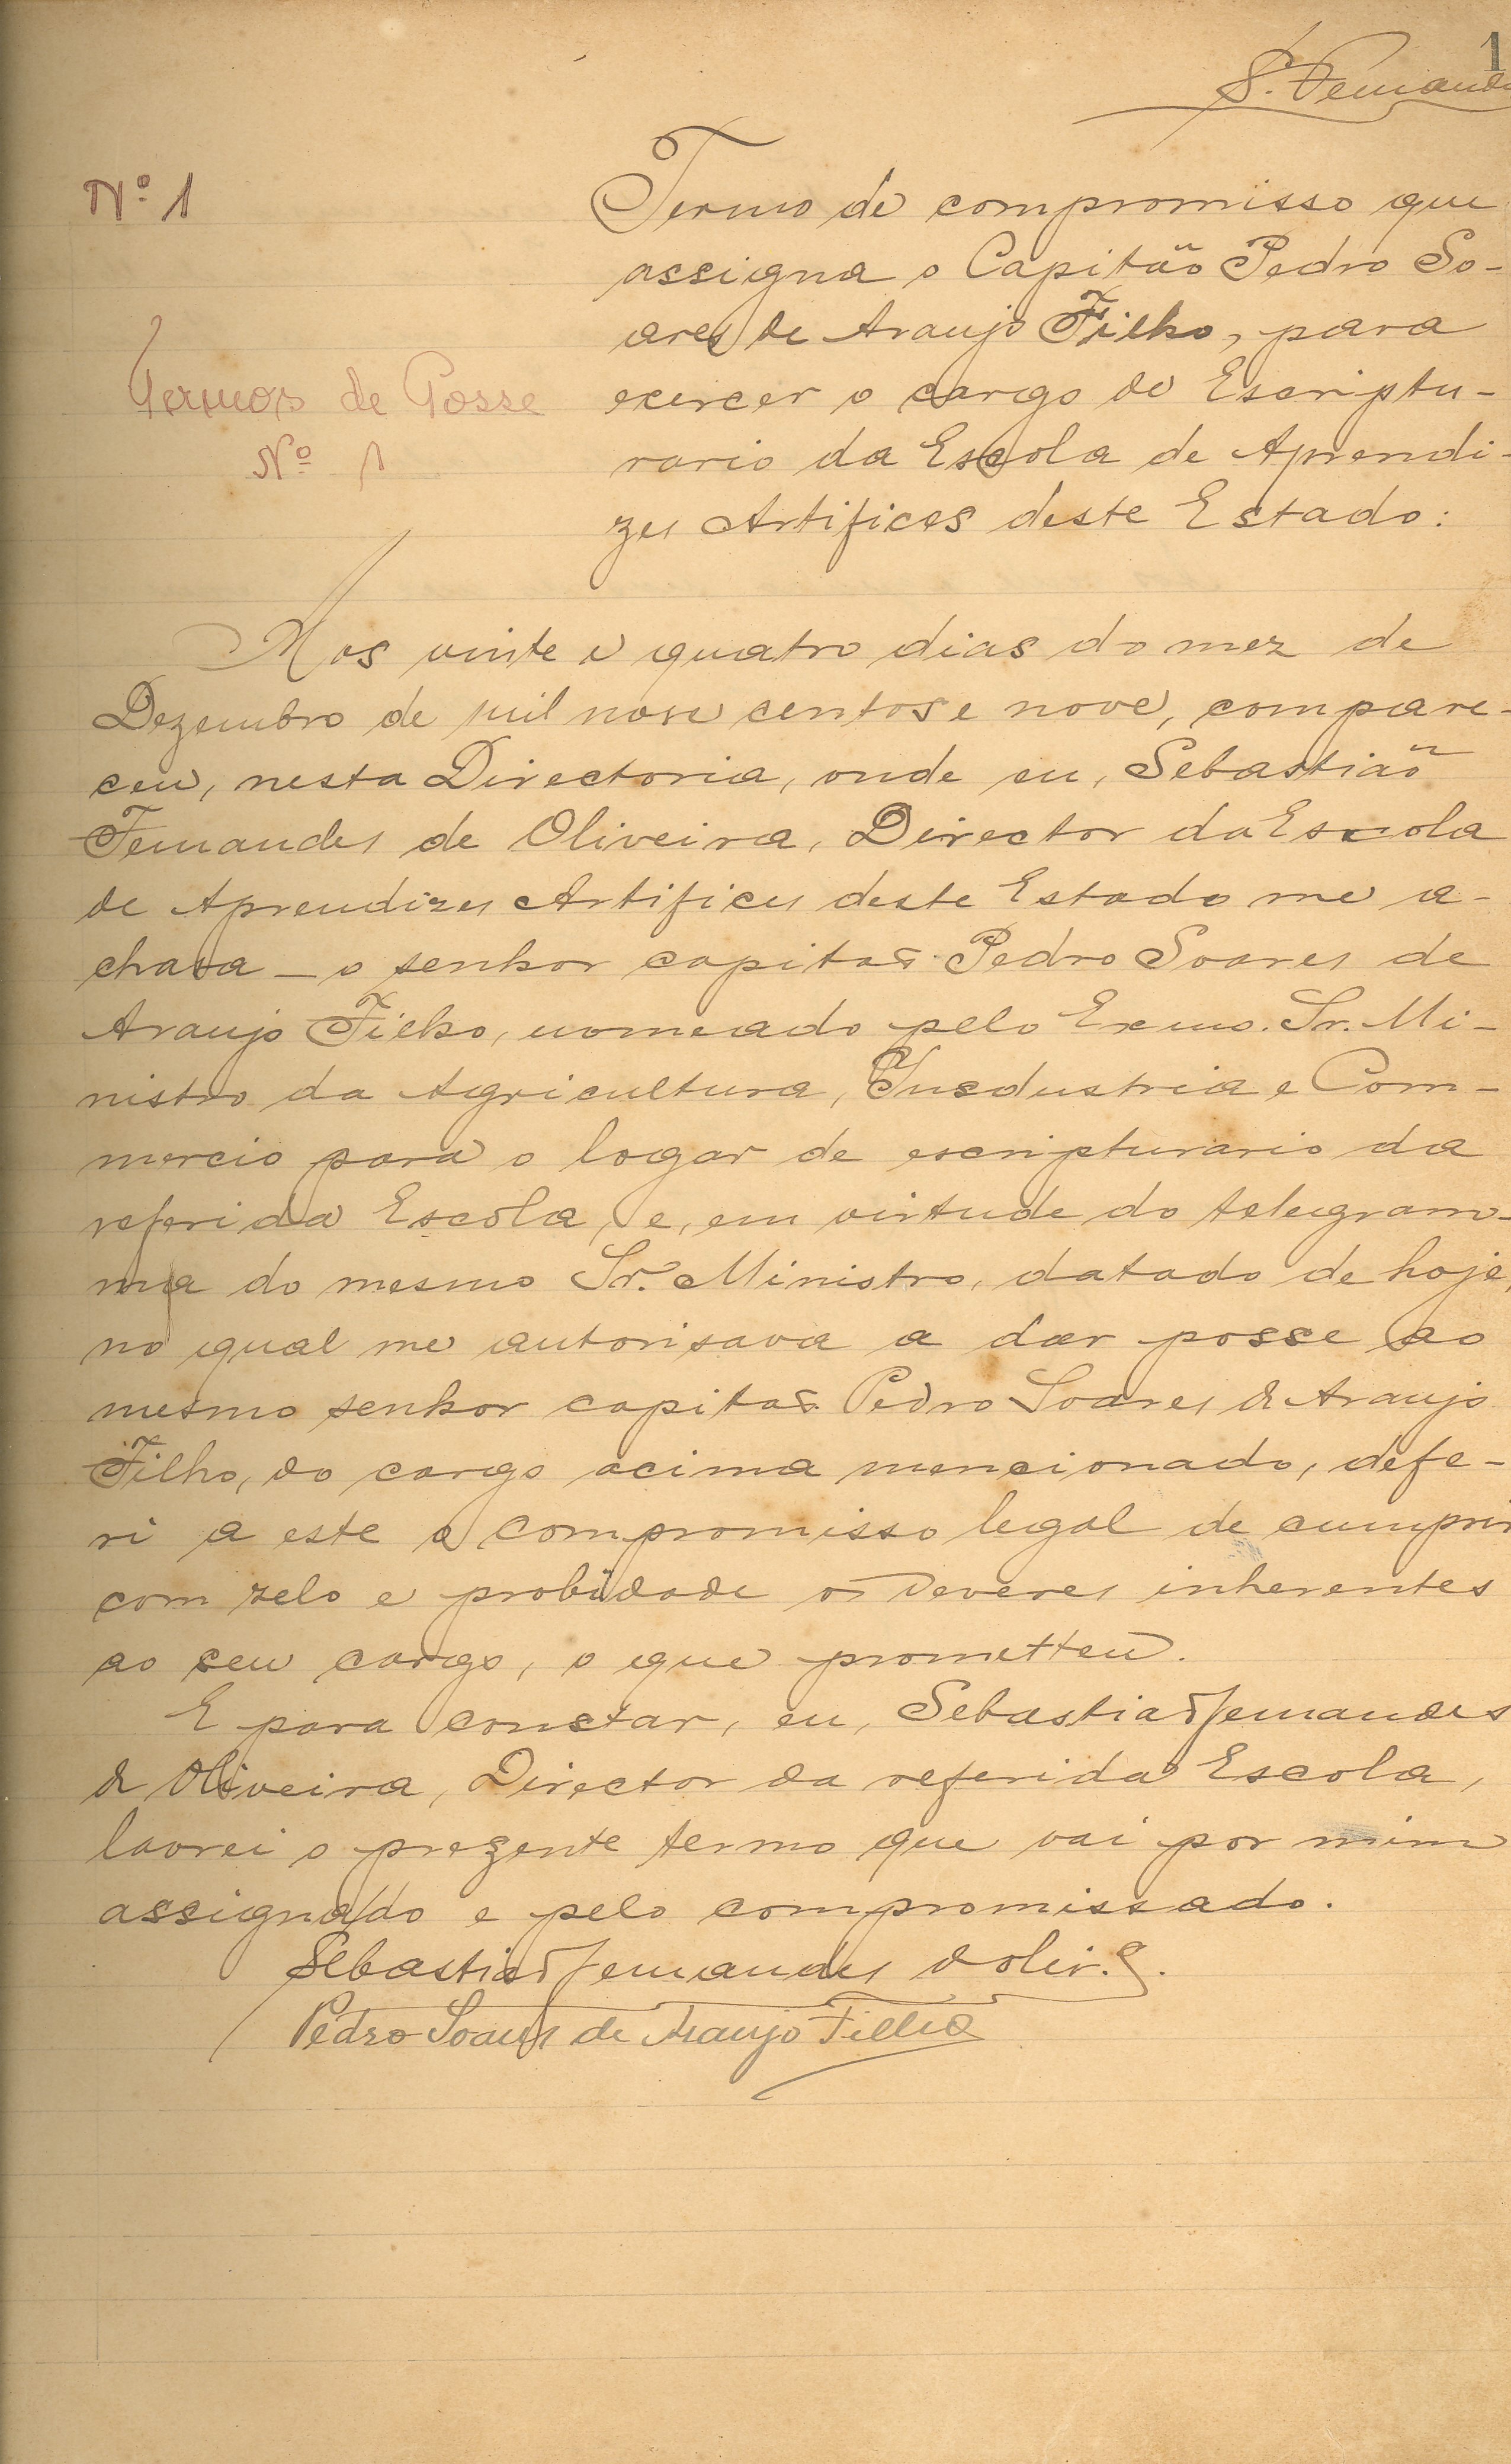 1
S. Fernandes
Nº 1
Termo de compromisso que
assigna o Capitão Pedro So-
ares de Araujo Filho, para
exercer o cargo de Escriptu-
rario da Escola de Aprendi-
zes Artifices deste Estado:
Termos de Posse
Nº 1
Aos vinte e quatro dias do mez de
Dezembro de mil nove centos e nove, compare-
ceu, nesta Directoria, onde eu, Sebastião
Fernandes de Oliveira, Director da Escola
de Aprendizes Artifices deste Estado me a-
chava – o senhor capitão Pedro Soares de
Araujo Filho, nomeado pelo Exmo. Sr. Mi-
nistro da Agricultura, Industria e Com-
mercio para o logar de escripturario da
referida Escola, e, em virtude do telegram-
ma do mesmo Sr. Ministro, datado de hoje,
no qual me autorisava a dar posse ao
mesmo senhor capitão Pedro Soares de Araujo
Filho, do cargo acima mencionado, defe-
ri a este o compromisso legal de cumprir
com zelo e probidade os deveres inherentes
ao seu cargo, o que prometteu.
E para constar, eu, Sebastião Fernandes
de Oliveira, Director da referida Escola,
lavrei o prezente termo que vai por mim
assignado e pelo compromissado.
Sebastião Fernandes d'Oliv.ª
Pedro Soares de Araujo Filho